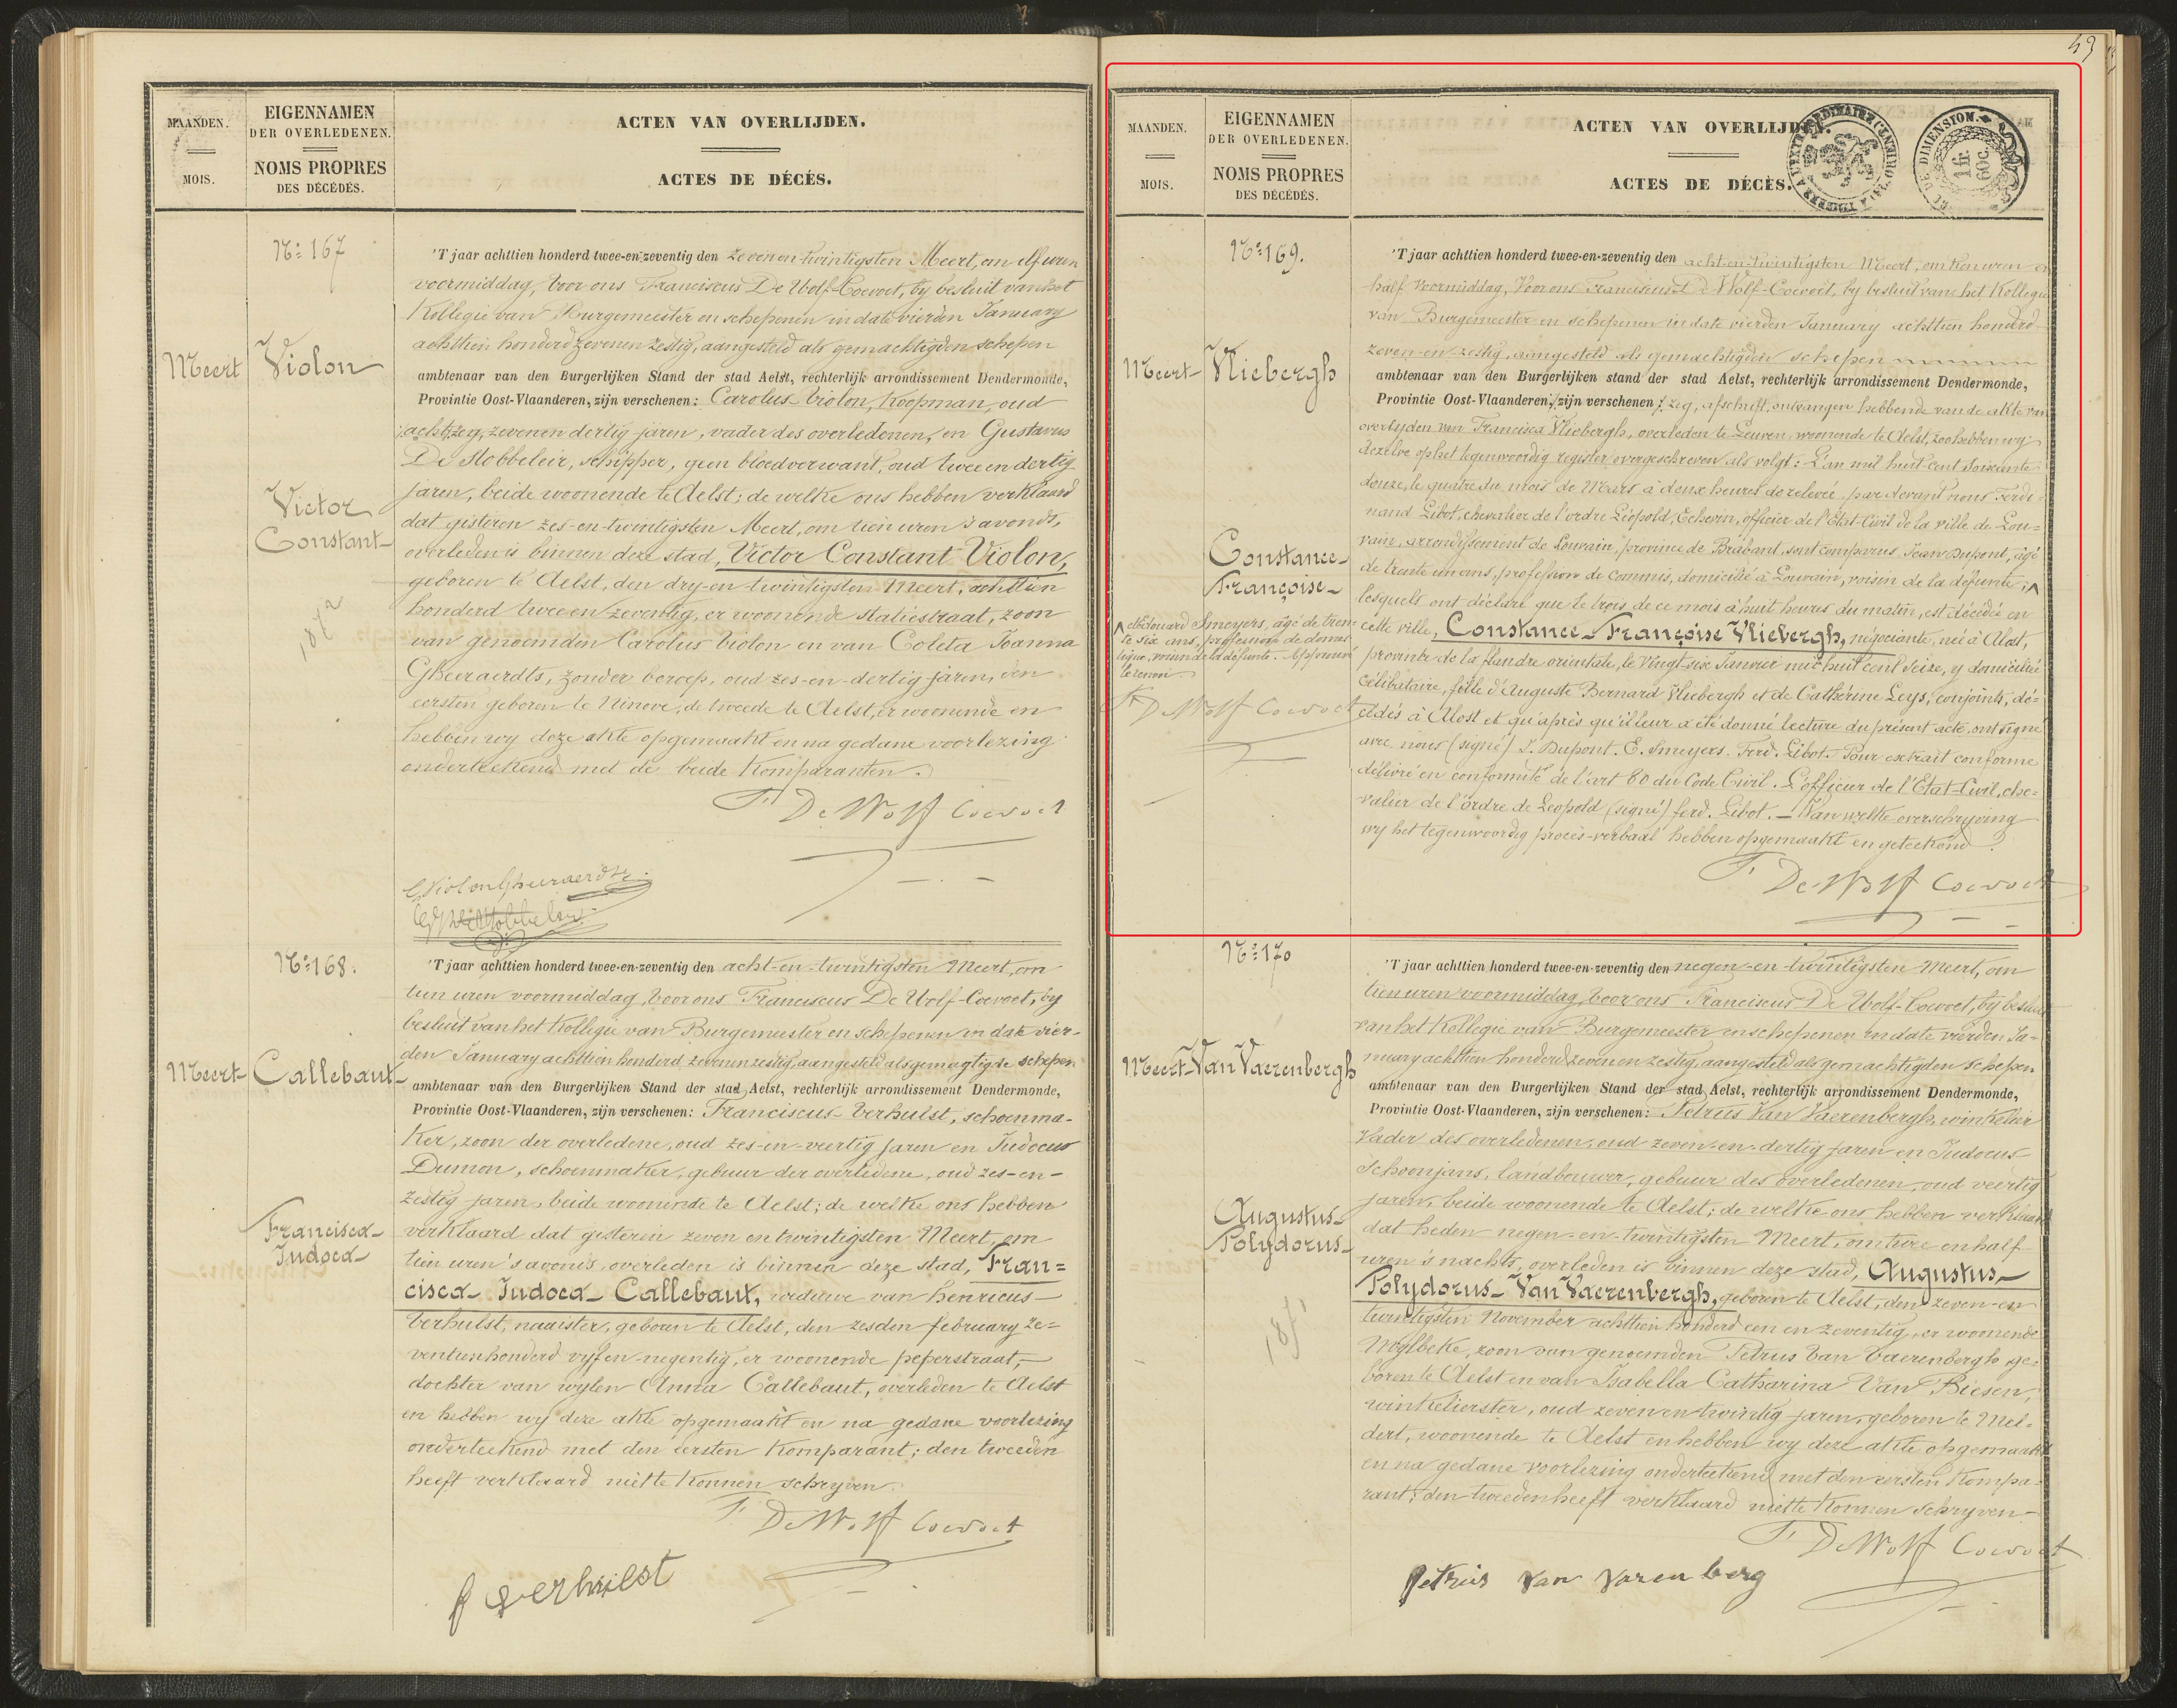 MAANDEN.
MOIS.
EIGENNAMEN
DER OVERLEDENEN.
NOMS PROPRES
DES DÉCÉDÉS.
ACTEN VAN OVERLIJDEN.
ACTES DE DÉCÉS.
No: 167
Meert
Violon
Victor
Constant
1872
'T jaar achttien honderd twee-en-zeventig den zevenen-twintigsten Meert, om elf uren
voormiddag, voor ons Franciscus De Wolf-Coevoet, by besluit van het
Kollegie van Burgemeester en schepenen in date vierden January
achttien honderd zevenenzestig, aangesteld als gemachtigden schepen
ambtenaar van den Burgerlijken Stand der stad Aelst, rechterlijk arrondissement Dendermonde,
Provintie Oost-Vlaanderen, zijn verschenen: Carolus Violon, Koopman, oud
zeg, zevenen dertig jaren, vader des overledenen, en Gustavus
De Stobbeleir, schipper, geen bloedverwant, oud twee en dertig
jaren, beide woonende te Aelst; de welke ons hebben verklaard
dat gisteren zes-en-twintigsten Meert, om tien uren 's avonds,
overleden is binnen deze stad, Victor Constant Violon,
geboren te Aelst, den dry-en-twintigsten Meert, achttien
honderd twee en zeventig, er woonende statiestraat, zoon
van genoemden Carolus Violon en van Coleta Joanna
Gheeraerdts, zonder beroep, oud zes-en-dertig jaren, den
eersten geboren te Ninove, de tweede te Aelst, er woonende en
hebben wy deze akte opgemaakt en na gedane voorlezing
onderteekend met de beide Komparanten.
F. De Wolf Coevoet
C Violon Gheeraerdts
No: 168.
Meert
Callebaut
Francisca
Judoca
'T jaar achttien honderd twee-en-zeventig den acht-en-twintigsten Meert, om
tien uren voormiddag, voor ons Franciscus De Wolf-Coevoet, by
besluit van het Kollegie van Burgemeester en schepenen in date vier-
den January achttien honderd zevenenzestig, aangesteld als gemagtigde schepen
ambtenaar van den Burgerlijken Stand der stad Aelst, rechterlijk arrondissement Dendermonde,
Provintie Oost-Vlaanderen, zijn verschenen: Franciscus Verhulst, schoenma-
ker, zoon der overledene, oud zes-en-veertig jaren en Judocus
Dumon, schoenmaker, gebuur der overledene, oud zes-en-
zestig jaren, beide woonende te Aelst; de welke ons hebben
verklaard dat gisteren zeven en twintigsten Meert, om
tien uren 's avonds, overleden is binnen deze stad, Fran=
cisca Judoca Callebaut, weduwe van henricus
Verhulst, naaister, geboren te Aelst, den zesden february ze=
ventienhonderd vyf en-negentig, er woonende peperstraat,
dochter van wylen Anna Callebaut, overleden te Aelst
en hebben wy deze akte opgemaakt en na gedane voorlezing
onderteekend met den eersten Komparant; den tweeden
heeft verklaard niet te Konnen schryven.
F. De Wolf Coevoet
f verhulst
49
MAANDEN.
MOIS.
EIGENNAMEN
DER OVERLEDENEN.
NOMS PROPRES
DES DÉCÉDÉS.
ACTEN VAN OVERLIJDEN.
ACTES DE DÉCÈS.
DE DIMENSION.
1 fr.
60c.
No: 169.
Meert
Vliebergh
Constance
Françoise
'T jaar achttien honderd twee-en-zeventig den acht-en-twintigsten Meert, om tien uren en
half voormiddag, Voor ons Franciscus De Wolf-Coevoet, by besluit van het Kollegie
van Burgemeester en schepenen in date vierden January achttien honderd
zeven-en-zestig, aangesteld als gemachtigden schepen
ambtenaar van den Burgerlijken stand der stad Aelst, rechterlijk arrondissement Dendermonde,
Provintie Oost-Vlaanderen, zijn verschenen: zeg, afschrift, ontvangen hebbende van de akte van
overlyden van Francisca Vliebergh, overleden te Leuven, woonende te Aelst, zoo hebben wy
dezelve op het tegenwoordig register overgeschreven als volgt: L'an mil huit-cent Soixante
douze, le quatre du mois de Mars à deux heures de relevée, par devant nous Ferdi-
nand Libot, chevalier de l'ordre Léopold, Echevin, officier de l'État-Civil de la ville de Lou=
vain, arrondissement de Louvain, province de Brabant, sont comparus Jean Dupont, âgé
de trente un ans, profession de commis, domicilié à Louvain, voisin de la défunte, ∧
lesquels ont déclaré que le trois de ce mois à huit heures du matin, est décédée en
cette ville, Constance Françoise Vliebergh, négociante, née à Alost,
province de la flandre orientale, le vingt-six Janvier mil huit cent Seize, y domiciliée
célibataire, fille d'Auguste Bernard Vliebergh et de Cathérine Leys, conjoints, dé-
cédés à Alost et qu'après qu'il leur a été donné lecture du présent acte, ont signé
avec nous (signé) J. Dupont. E. Smeyers. Ferd. Libot. Pour extrait conforme
délivré en conformité de l'art 80 du Code Civil. L'officier de l'État-Civil, che-
valier de l'ordre de Leopold (signé) ferd. Libot. — Van welke overschryving
wy het tegenwoordig proces-verbaal hebben opgemaakt en geteekend.
F. De Wolf Coevoet
∧ et Edouard Smeyers, âgé de tren-
te six ans, profession de domes-
tique, voisin de la défunte. Approuvé
le renvoi
F. De Wolf Coevoet
No: 170
Meert
Van Vaerenbergh
Augustus
Polydorus
'T jaar achttien honderd twee-en-zeventig den negen-en-twintigsten Meert, om
tien uren voormiddag, voor ons Franciscus De Wolf-Coevoet, by besluit
van het Kollegie van Burgemeester en schepenen in date vierden Ja-
nuary achttien honderd zevenenzestig, aangesteld als gemachtigden schepen
ambtenaar van den Burgerlijken Stand der stad Aelst, rechterlijk arrondissement Dendermonde,
Provintie Oost-Vlaanderen, zijn verschenen: Petrus Van Vaerenbergh, winkelier
vader des overledenen, oud zeven-en-dertig jaren en Judocus
Schoonjans, landbouwer, gebuur des overledenen, oud veertig
jaren, beide woonende te Aelst; de welke ons hebben verklaard
dat heden negen-en-twintigsten Meert, om twee en half
uren 's nachts, overleden is binnen deze stad, Augustus
Polydorus Van Vaerenbergh, geboren te Aelst, den zeven-en
twintigsten November achttien honderd een en zeventig, er woonende
zoon van genoemden Petrus Van Vaerenbergh ge=
boren te Aelst en van Isabella Catharina Van Biesen,
winkelierster, oud zevenentwintig jaren, geboren te Mel-
dert, woonende te Aelst en hebben wy deze akte opgemaakt
en na gedane voorlezing onderteekend met den eersten Kompa-
rant; den tweeden heeft verklaard niet te Konnen schryven.
F. De Wolf Coevoet
Petrus Van Varenberg